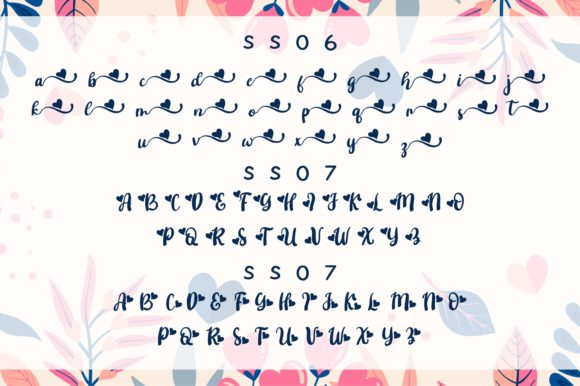 SS06
a b c d e f g h i j
k l m n o p q r s t
u v w x y z
SS07
A B C D E F G H I J K L M N O
P Q R S T U V W X Y Z
SS07
A B C D E F G H I J K L M N O
P Q R S T U V W X Y Z